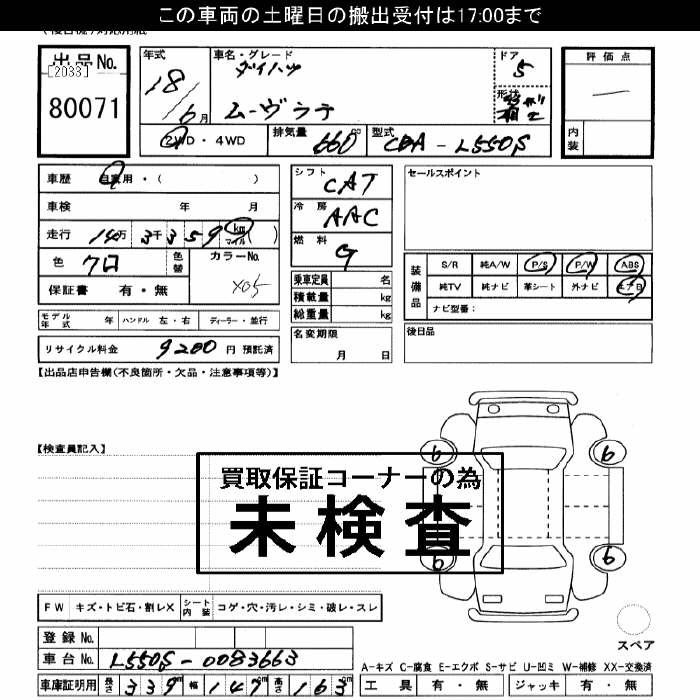 この車両の土曜日の搬出受付は17:00まで
出品No.
[2033]
80071
年式
18/6月
車名・グレード
ダイハツ
ムーヴラテ
ドア
5
形状
評価点
―
内装
2WD・4WD
排気量 660 cc
型式 CBA-L550S
車歴 自家用・( )
車検 年 月
走行 14万3千359 km マイル ( )
色 クロ
色替
カラーNo. X05
保証書 有・無
シフト CAT
冷房 AAC
燃料 G
乗車定員 名
積載量 kg
総重量 kg
セールスポイント
装備品
S/R 純A/W P/S P/W ABS
純TV 純ナビ 革シート 外ナビ エアB
ナビ型番:
モデル年式 年 ハンドル 左・右 ディーラー・並行
リサイクル料金 9200 円 預託済
名変期限
月 日
後日品
【出品店申告欄(不良箇所・欠品・注意事項等)】
【検査員記入】
6 6
6 6
買取保証コーナーの為
未検査
FW キズ・トビ石・割レX シート内装 コゲ・穴・汚レ・シミ・破レ・スレ
スペア
登録No.
車台No. L550S-0083663
車庫証明用 長さ 339 cm 幅 147 cm 高さ 163 cm
A-キズ C-腐食 E-エクボ S-サビ U-凹ミ W-補修 XX-交換済
工具 有・無 ジャッキ 有・無